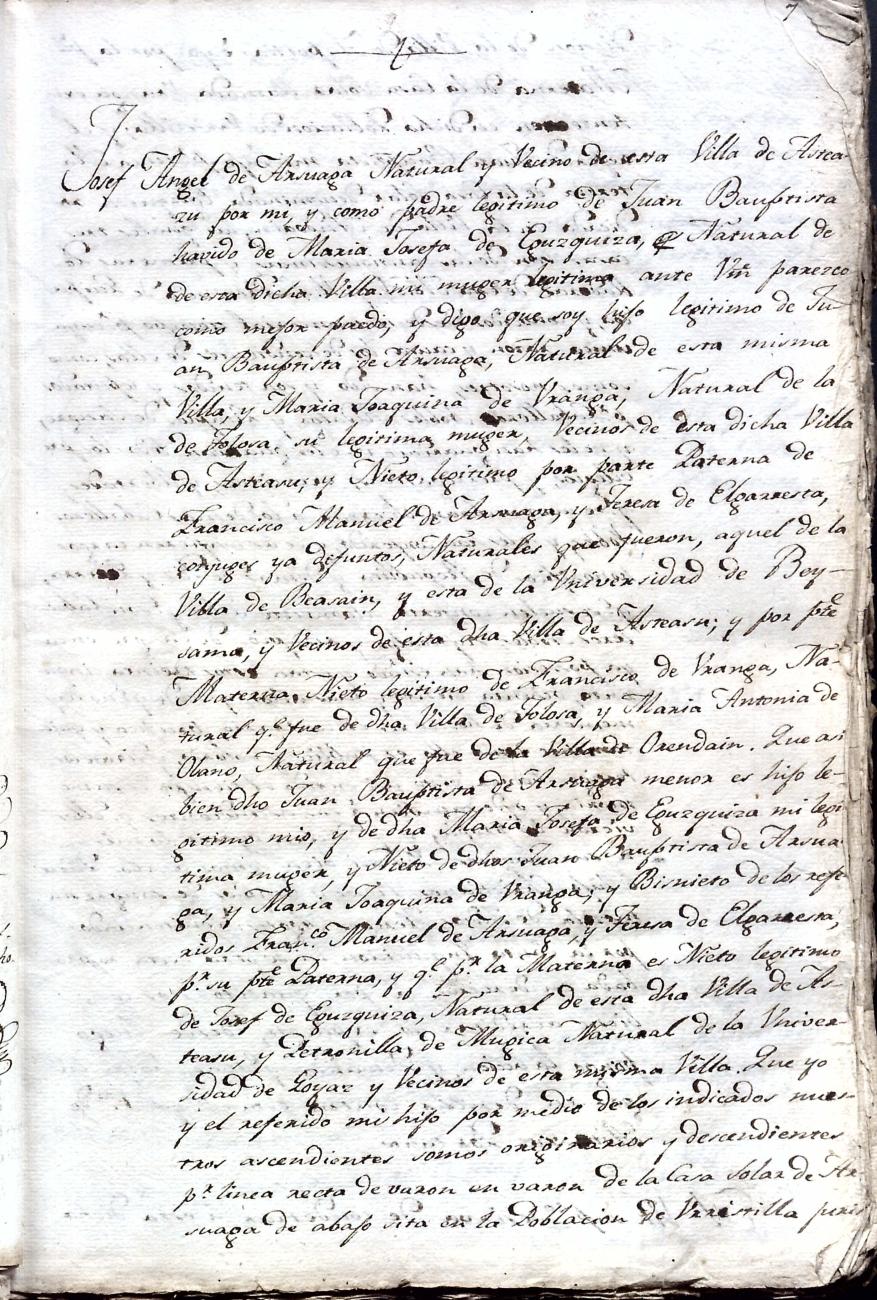 7
Josef Angel de Arsuaga Natural y Vecino de esta Villa de Astea-
zu por mi, y como padre legitimo de Juan Bauptista
havido de Maria Josefa de Eguzquiza, Natural de
de esta dicha Villa mi muger legitima ante Vm parezco
como mejor puedo, y digo que soy hijo legitimo de Ju-
an Bauptista de Arsuaga, Natural de esta misma
Villa, y Maria Joaquina de Vranga, Natural de la
de Tolosa su legitima muger, Vecinos de esta dicha Villa
de Asteasu; y Nieto legitimo por parte Paterna de
Francisco Manuel de Arsuaga, y Teresa de Elgarresta,
conjuges ya defuntos, Naturales que fueron, aquel de la
Villa de Beasain, y esta de la Vniversidad de Bey-
sama, y Vecinos de esta dha Villa de Asteasu; y por pte
Materna Nieto legitimo de Francisco de Vranga, Na-
tural q.e fue de dha Villa de Tolosa, y Maria Antonia de
Olano, Natural que fue de la Villa de Orendain. Que asi
bien dho Juan Bauptista de Arsuaga menor es hijo le-
gitimo mio, y de dha Maria Josefa de Eguzquiza mi legi
tima muger, y Nieto de dhos Juan Bauptista de Arsua
ga, y Maria Joaquina de Vranga, y Bisnieto de los refe
ridos Fran.co Manuel de Arsuaga, y Teresa de Elgarresta,
p.r su pte Paterna, y q.e p.r la Materna es Nieto legitimo
de Josef de Eguzquiza, Natural de esta dha Villa de As-
teasu, y Petronilla de Mugica Natural de la Vniver-
sidad de Goyaz y Vecinos de esta misma Villa. Que yo
y el referido mi hijo por medio de los indicados nues-
tros ascendientes somos originarios y descendientes
p.r linea recta de varon en varon de la Casa Solar de Ar
suaga de abajo sita en la Poblacion de Vrristilla juris